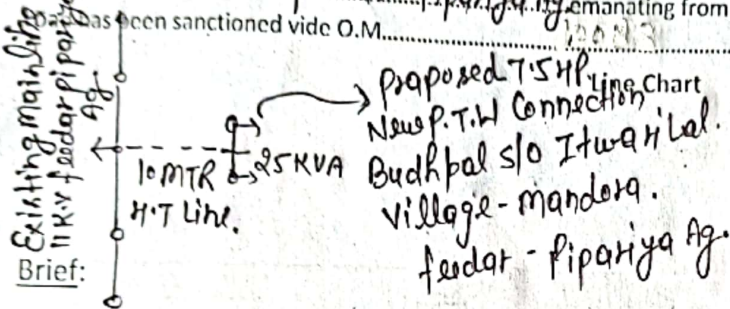 Pipariya Ag. emanating from
has been sanctioned vide O.M.
Existing main line
11 KV feedar pipariya
Ag
10 MTR
H.T Line.
25 KVA
Line Chart
Proposed 7.5 HP
New P.T.W Connection
Budhpal s/o Itwari Lal.
Village - mandora.
feedar - Pipariya Ag.
Brief: